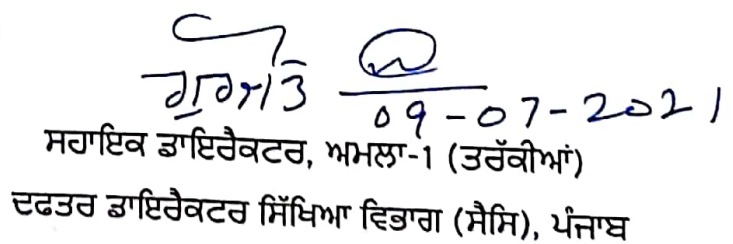 ਗੁਰਜੀਤ
09-07-2021
ਸਹਾਇਕ ਡਾਇਰੈਕਟਰ, ਅਮਲਾ-1 (ਤਰੱਕੀਆਂ)
ਦਫਤਰ ਡਾਇਰੈਕਟਰ ਸਿੱਖਿਆ ਵਿਭਾਗ (ਸੈਸਿ), ਪੰਜਾਬ